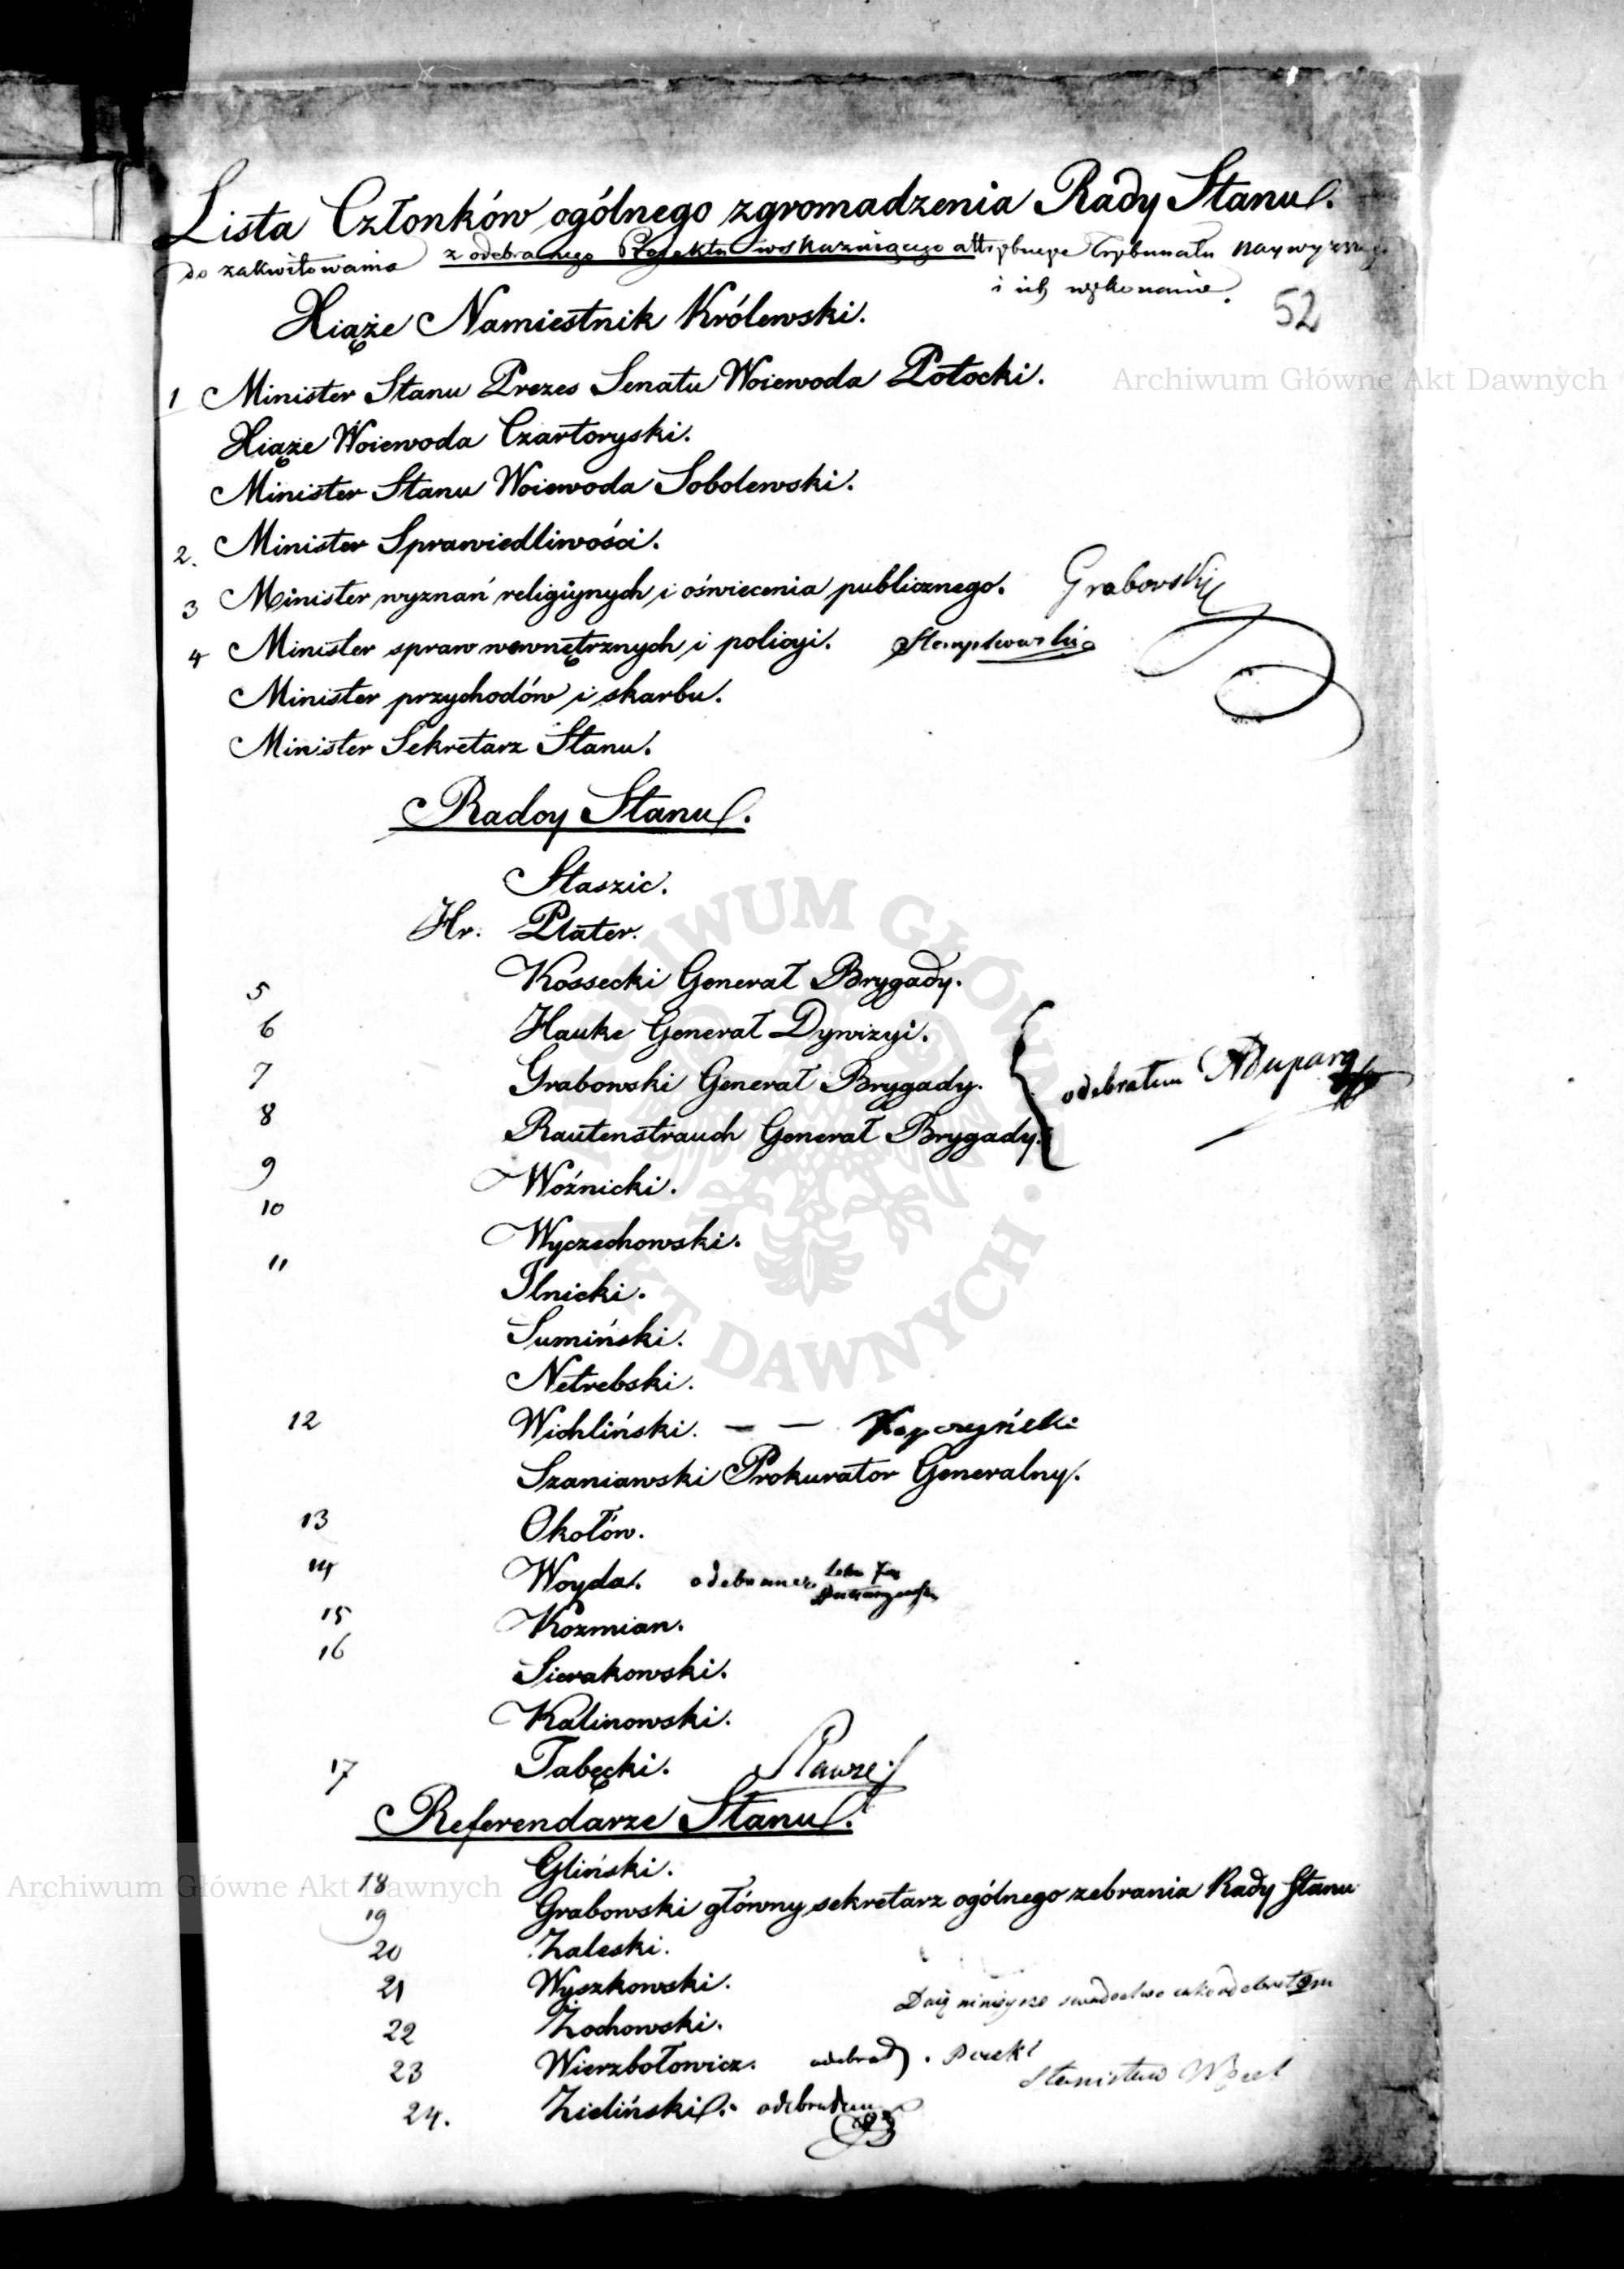 Lista Członków ogólnego zgromadzenia Rady Stanu.
do zakwitowania z odebranego Projektu wskazuiącego attrybucye Trybunału Naywyższego
i ich wykonanie.
52
Xiąże Namiestnik Królewski.
Archiwum Główne Akt Dawnych
1 Minister Stanu Prezes Senatu Woiewoda Potocki.
Xiąże Woiewoda Czartoryski.
Minister Stanu Woiewoda Sobolewski.
2. Minister Sprawiedliwości.
3 Minister wyznań religiynych i oświecenia publicznego. Grabowski
4 Minister spraw wewnętrznych i policyi. Stempkowski
Minister przychodów i skarbu.
Minister Sekretarz Stanu.
Radcy Stanu.
Staszic.
Hr. Plater.
5 Kossecki Generał Brygady.
6 Hauke Generał Dywizyi.
7 Grabowski Generał Brygady. odebrałem
8 Rautenstrauch Generał Brygady.
9 Woźnicki.
10 Wyczechowski.
11 Ilnicki.
Sumiński.
Netrebski.
12 Wichliński. — — Kopczyński
Szaniawski Prokurator Generalny.
13 Okołów.
14 Woyda. odebrane
15 Koźmian.
16 Sierakowski.
Kalinowski.
17 Tabęcki.
Referendarze Stanu.
18 Gliński.
Archiwum Główne Akt Dawnych
19 Grabowski główny sekretarz ogólnego zebrania Rady Stanu
20 Zaleski.
21 Wyszkowski.
Daię ninieysze swiadectwo jako odebrałem
22 Żochowski.
23 Wierzbołowicz. odebrał
Stanisław
24. Zieliński. odebrałem
ARCHIWUM GŁÓWNE AKT DAWNYCH